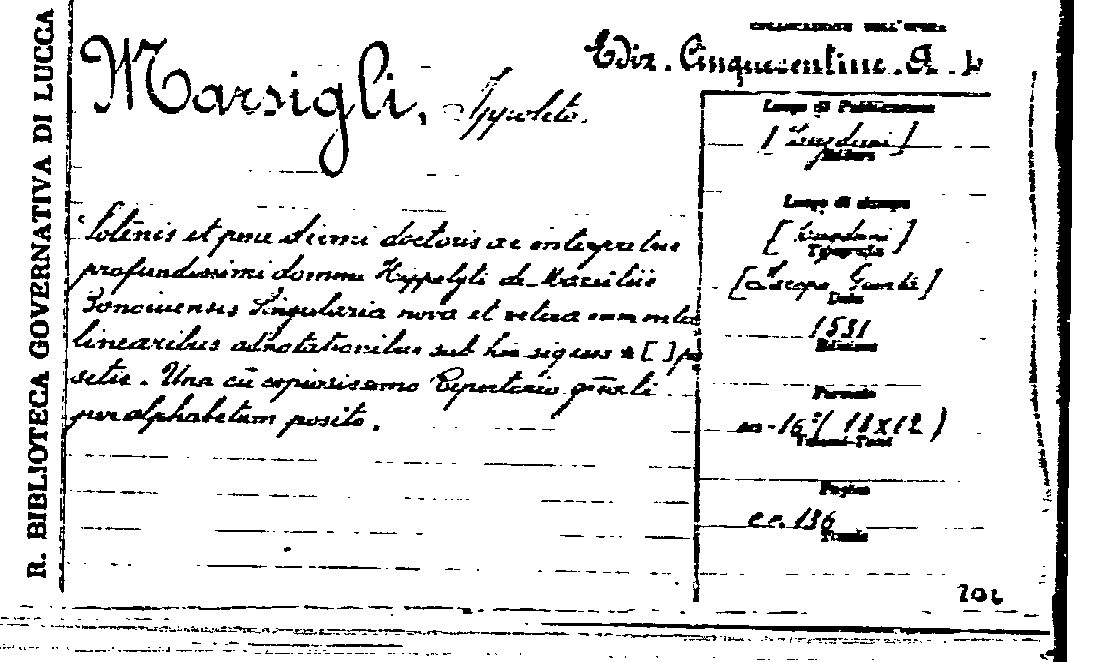 R. BIBLIOTECA GOVERNATIVA DI LUCCA
COLLOCAZIONE DELL'OPERA
Ediz. Cinquecentine. A. b
Marsigli, Ippolito.
Luogo di Pubblicazione
[Lugduni]
Editore
Luogo di stampa
[Lugduni]
Tipografia
[Jacopo Giunta]
Data
1531
Edizione
Formato
in-16° (18x12)
Tomi-Parti
Pagine
cc. 136
Tavole
Solẽnis et pene divini doctoris ac interpretis
profundissimi domini Hippolyti de Marsiliis
Bononiensis Singularia nova et vetera cum
linearibus adnotationibus sub his signis * [ ] po
sitis. Una cũ copiosissimo Repertorio gñrali
per alphabetum posito.